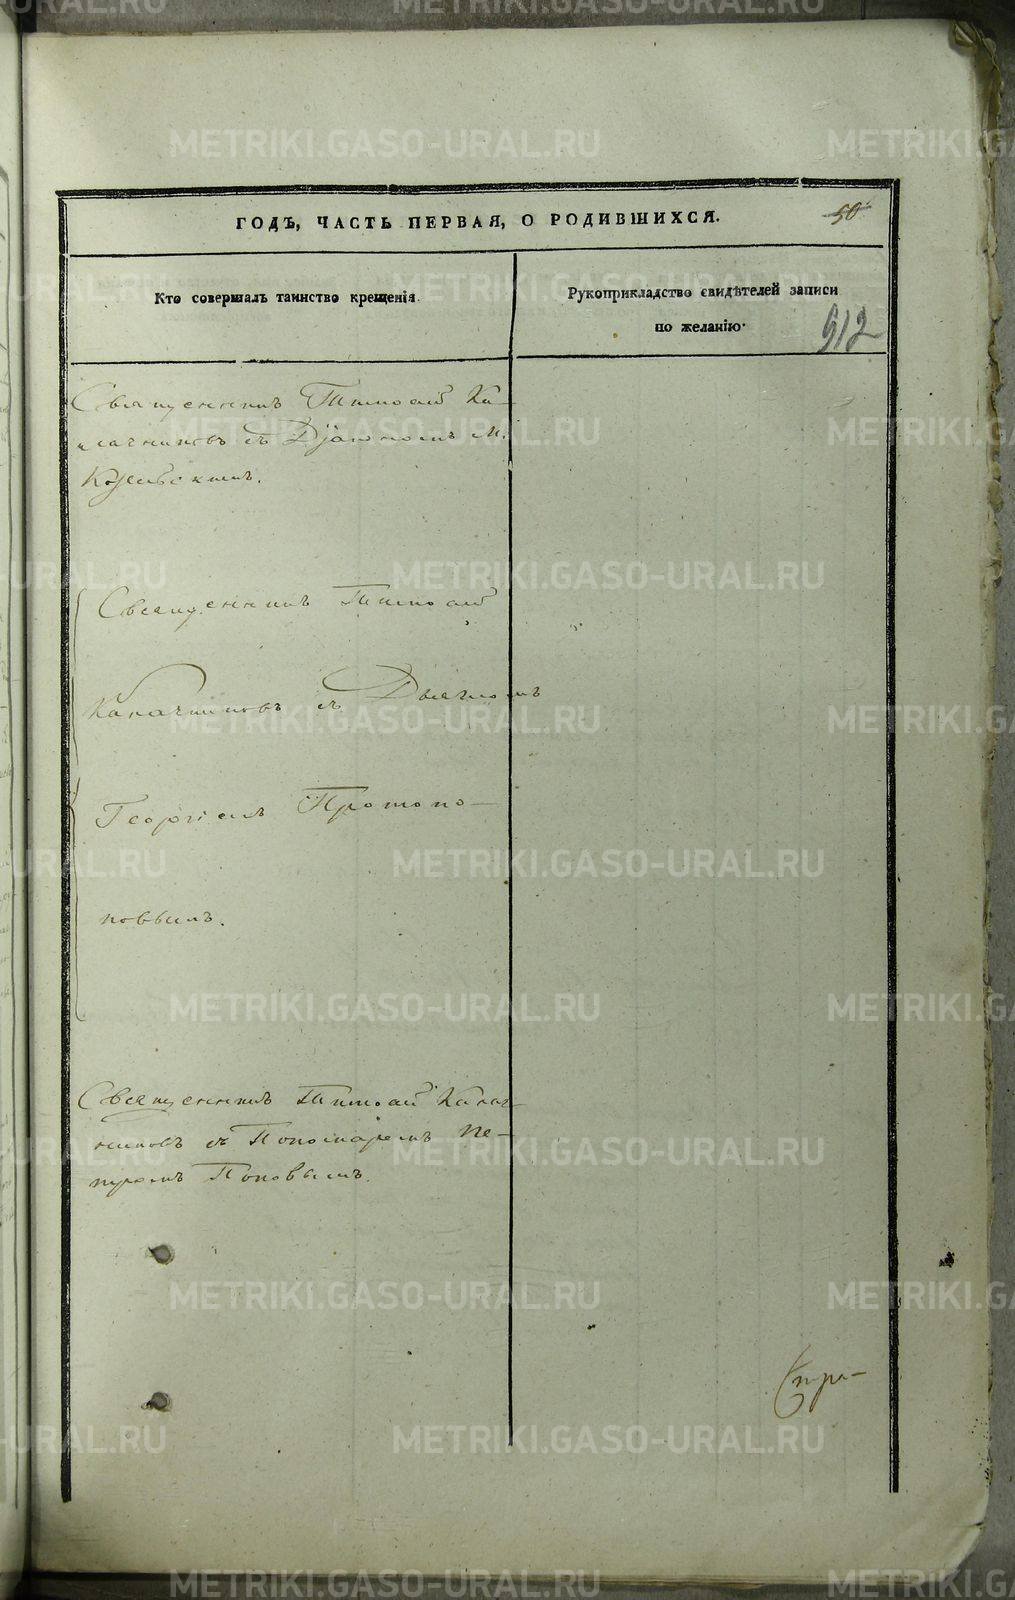 ГОДЪ, ЧАСТЬ ПЕРВАЯ, О РОДИВШИХСЯ.
50
Кто совершалъ таинство крещенія.
Рукоприкладство свидѣтелей записи
по желанію.
912
Священникъ Тимофей Ка-
лачниковъ съ Діакономъ
Священникъ Тимофей
Калачниковъ съ Дьячкомъ
Георгіемъ Протопо-
повымъ.
Священникъ Тимофей Калач-
никовъ съ Пономаремъ Пе-
тромъ Поповымъ.
METRIKI.GASO-URAL.RU